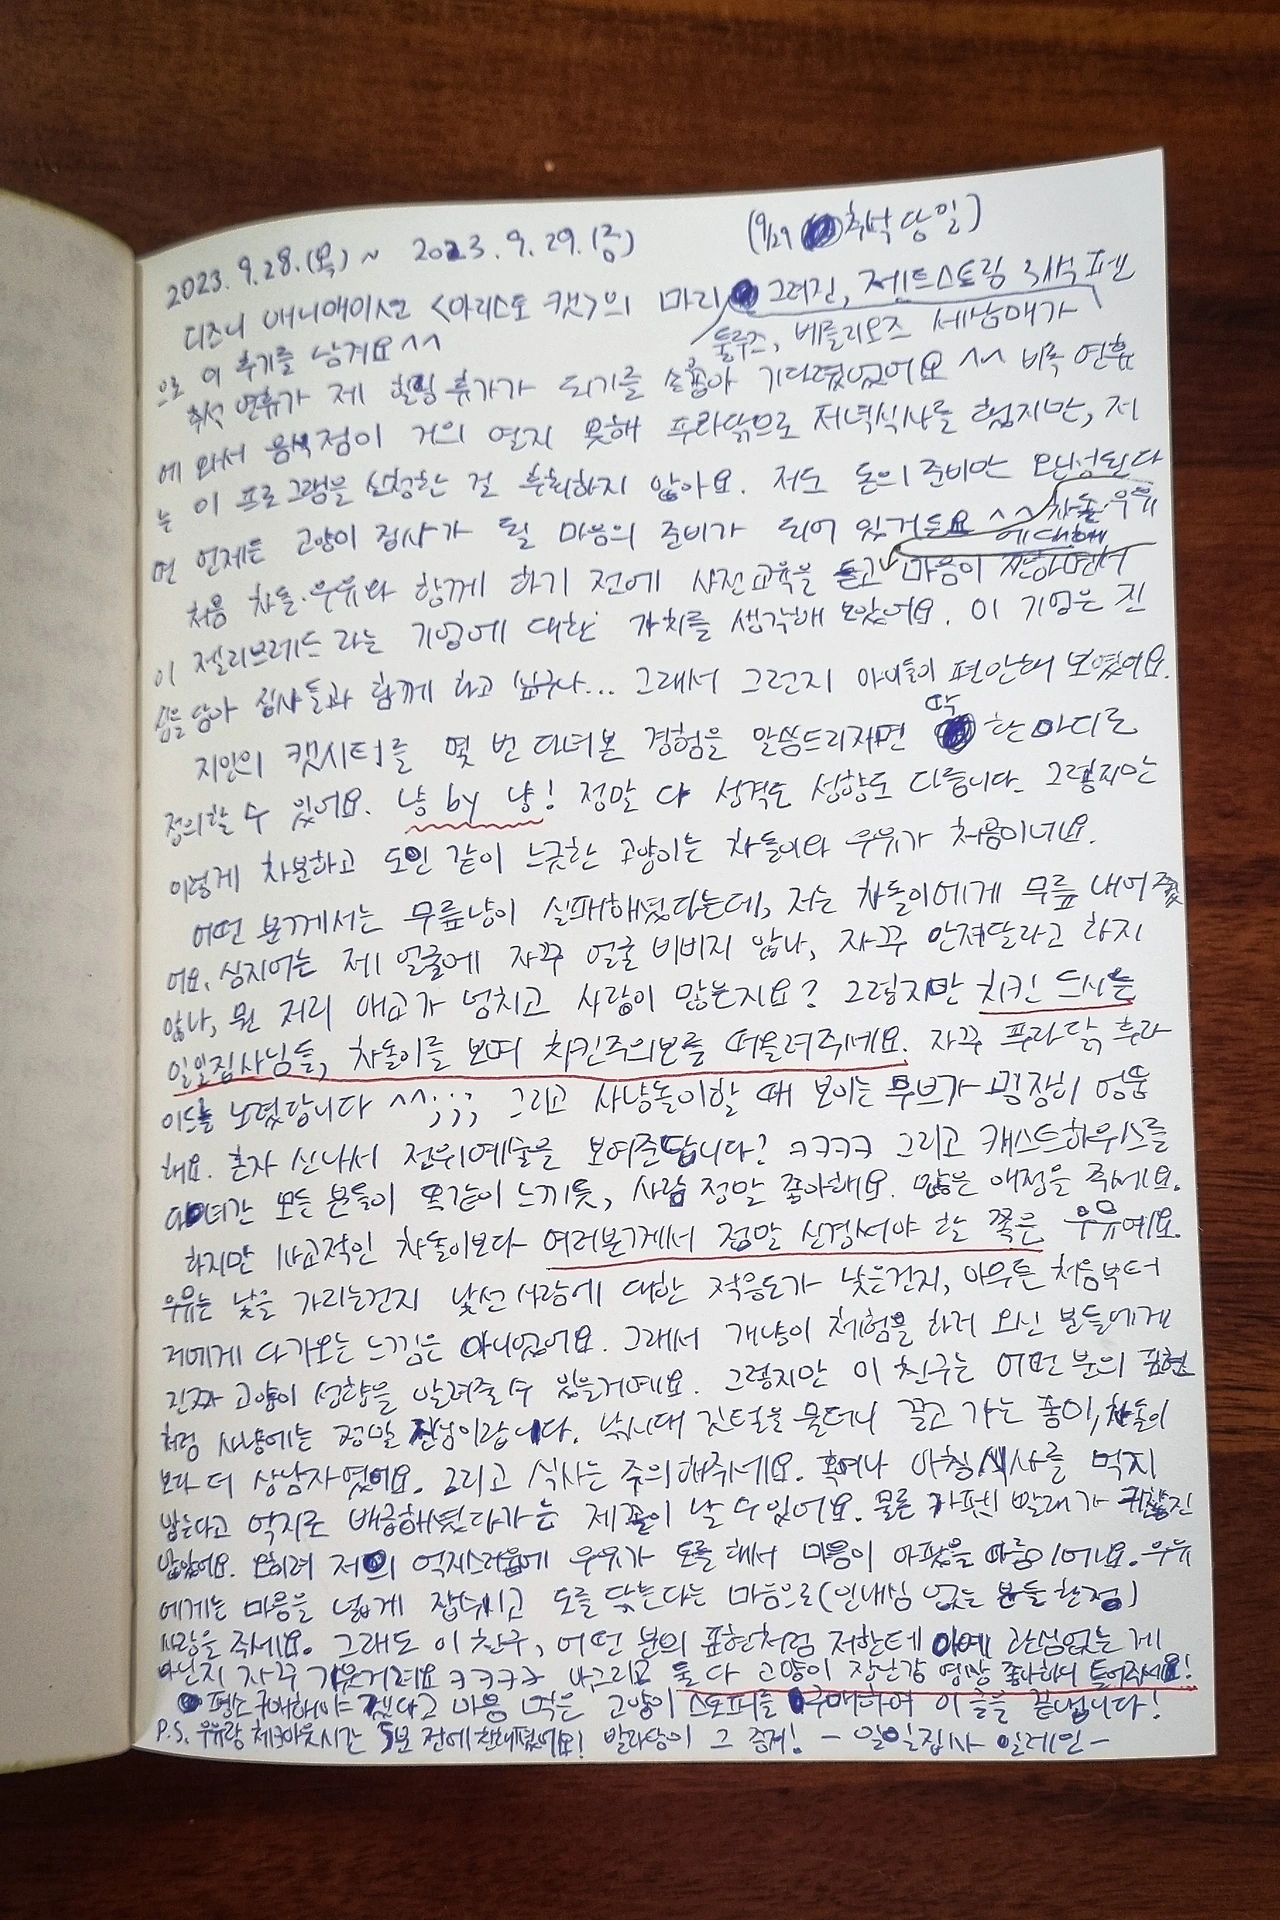 2023. 9. 28.(목) ~ 2023. 9. 29.(금) (9/29 추석 당일)
디즈니 애니메이션 <아리스토 캣>의 마리 그려진, 제트스트림 3색 펜
툴루즈, 베를리오즈 세남매가
으로 이 후기를 남겨요^^
추석 연휴가 제 힐링휴가가 되기를 손꼽아 기다렸었어요 ^^ 비록 연휴
에 와서 음식점이 거의 열지 못해 푸라닭으로 저녁식사를 했지만, 저
는 이 프로그램을 신청한 걸 후회하지 않아요. 저도 돈의 준비만 완성된다
면 언제든 고양이 집사가 될 마음의 준비가 되어 있거든요^^ 차돌·우유
에 대해
처음 차돌·우유와 함께 하기 전에 사전교육을 듣고 마음이 찡하면서
이 젤리브레드라는 기업에 대한 가치를 생각해 보았어요. 이 기업은 진
심을 담아 집사들과 함께 하고 싶구나... 그래서 그런지 아이들이 편안해 보였어요.
딱
지인의 캣시터를 몇 번 다녀본 경험을 말씀드리자면 한 마디로
정의할 수 있어요. 냥 by 냥! 정말 다 성격도 성향도 다릅니다. 그렇지만
이렇게 차분하고 도인 같이 느긋한 고양이는 차돌이와 우유가 처음이네요.
어떤 분께서는 무릎냥이 실패하셨다는데, 저는 차돌이에게 무릎 내어줬
어요. 심지어는 제 얼굴에 자꾸 얼굴 비비지 않나, 자꾸 만져달라고 하지
않나, 뭔 저리 애교가 넘치고 사랑이 많은지요? 그렇지만 치킨 드시는
일일집사님들, 차돌이를 보며 치킨주의보를 떠올려주세요. 자꾸 푸라닭 후라
이드를 노렸답니다 ^^;;; 그리고 사냥놀이할 때 보이는 무브가 굉장히 엉뚱
해요. 혼자 신나서 전위예술을 보여준답니다? ㅋㅋㅋㅋ 그리고 캐스트하우스를
다녀간 모든 분들이 똑같이 느끼듯, 사람 정말 좋아해요. 많은 애정을 주세요.
하지만 사교적인 차돌이보다 여러분께서 정말 신경써야 할 쪽은 우유예요.
우유는 낯을 가리는건지 낯선 사람에 대한 적응도가 낮은건지, 아무튼 처음부터
저에게 다가오는 느낌은 아니었어요. 그래서 개냥이 체험을 하러 오신 분들에게
진짜 고양이 성향을 알려줄 수 있을거예요. 그렇지만 이 친구는 어떤 분의 표현
처럼 사냥에는 정말 진심이랍니다. 낚시대 깃털을 물더니 끌고 가는 폼이, 차돌이
보다 더 상남자였어요. 그리고 식사는 주의해주세요. 혹여나 아침식사를 먹지
않는다고 억지로 배급하셨다가는 제꼴이 날 수 있어요. 물론 카펫 빨래가 귀찮진
않았어요. 오히려 저의 억지스러움에 우유가 토를 해서 마음이 아팠을 따름이어요. 우유
에게는 마음을 넓게 잡수시고 도를 닦는다는 마음으로(인내심 없는 분들 한정)
사랑을 주세요. 그래도 이 친구, 어떤 분의 표현처럼 저한테 아예 관심없는 게
아닌지 자꾸 기웃거려요 ㅋㅋㅋㅋ 아 그리고 둘 다 고양이 장난감 영상 좋아해서 틀어주세요!
평소 구매해야겠다고 마음 먹은 고양이 스토퍼를 구매하며 이 글을 끝냅니다!
P.S. 우유랑 체크아웃시간 5분 전에 친해졌어요! 발라당이 그 증거! - 일일집사 일레인 -